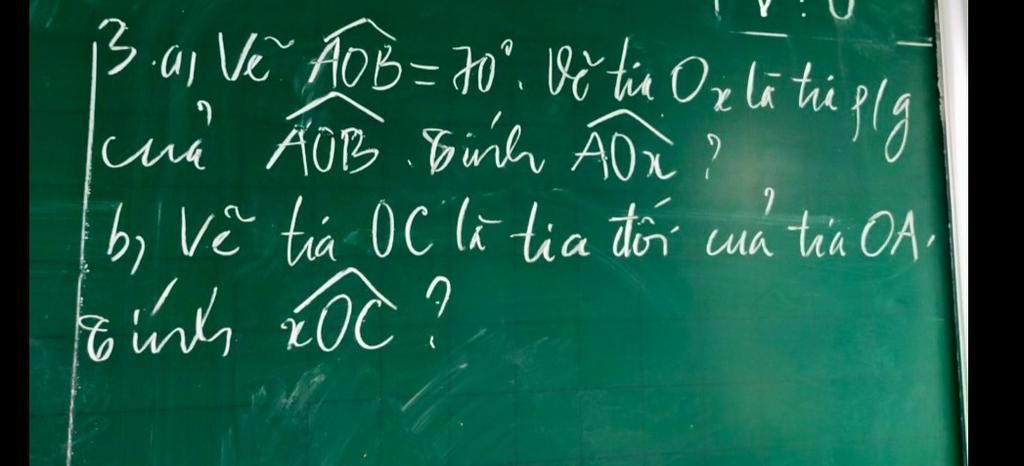 3. a, Vẽ \widehat{AOB} = 70°. Vẽ tia Ox là tia p/g
của \widehat{AOB}. Tính \widehat{AOx} ?
b, Vẽ tia OC là tia đối của tia OA.
Tính \widehat{xOC} ?